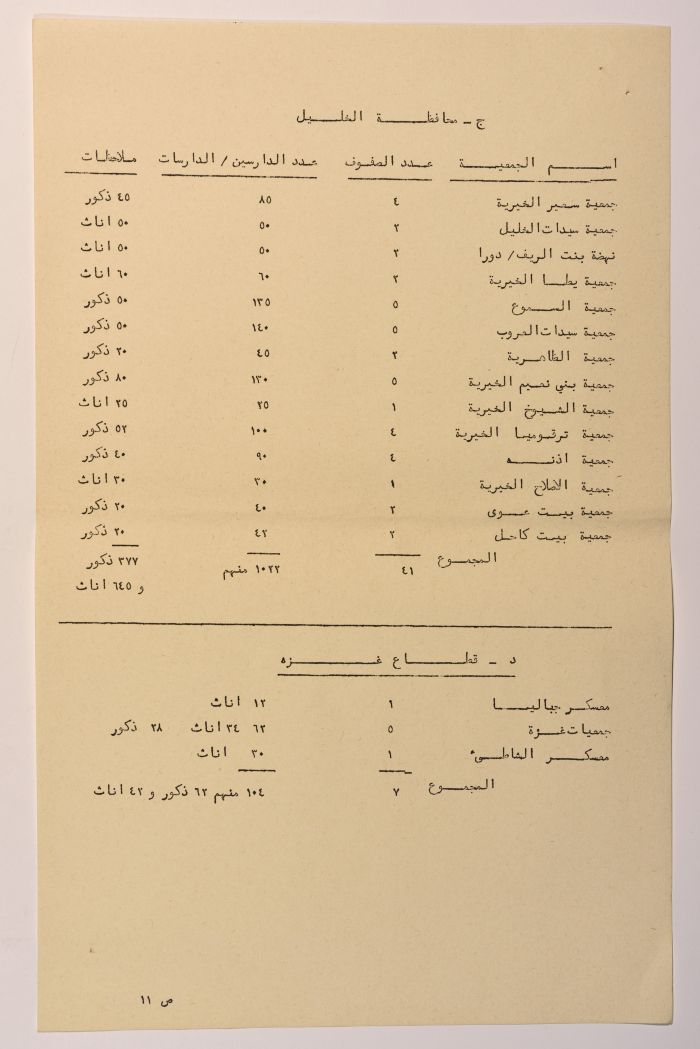 ج - محافظة الخليل
اسم الجمعية عدد الصفوف عدد الدارسين / الدارسات ملاحظات
جمعية سعير الخيرية ٤ ٨٥ ٤٥ ذكور
جمعية سيدات الخليل ٢ ٥٠ ٥٠ اناث
نهضة بنت الريف / دورا ٢ ٥٠ ٥٠ اناث
جمعية يطا الخيرية ٢ ٦٠ ٦٠ اناث
جمعية السموع ٥ ١٣٥ ٥٠ ذكور
جمعية سيدات العروب ٥ ١٤٠ ٥٠ ذكور
جمعية الظاهرية ٢ ٤٥ ٢٠ ذكور
جمعية بني نعيم الخيرية ٥ ١٣٠ ٨٠ ذكور
جمعية الشيوخ الخيرية ١ ٢٥ ٢٥ اناث
جمعية ترقوميا الخيرية ٤ ١٠٠ ٥٢ ذكور
جمعية اذنه ٤ ٩٠ ٤٠ ذكور
جمعية الاصلاح الخيرية ١ ٣٠ ٣٠ اناث
جمعية بيت عوى ٢ ٤٠ ٢٠ ذكور
جمعية بيت كاحل ٢ ٤٢ ٢٠ ذكور
المجموع ٤١ ١٠٢٢ منهم ٣٧٧ ذكور
و ٦٤٥ اناث
د - قطاع غزه
معسكر جباليا ١ ١٢ اناث
جمعيات غزة ٥ ٦٢ ٣٤ اناث ٢٨ ذكور
معسكر الشاطئ ١ ٣٠ اناث
المجموع ٧ ١٠٤ منهم ٦٢ ذكور و ٤٢ اناث
ص ١١